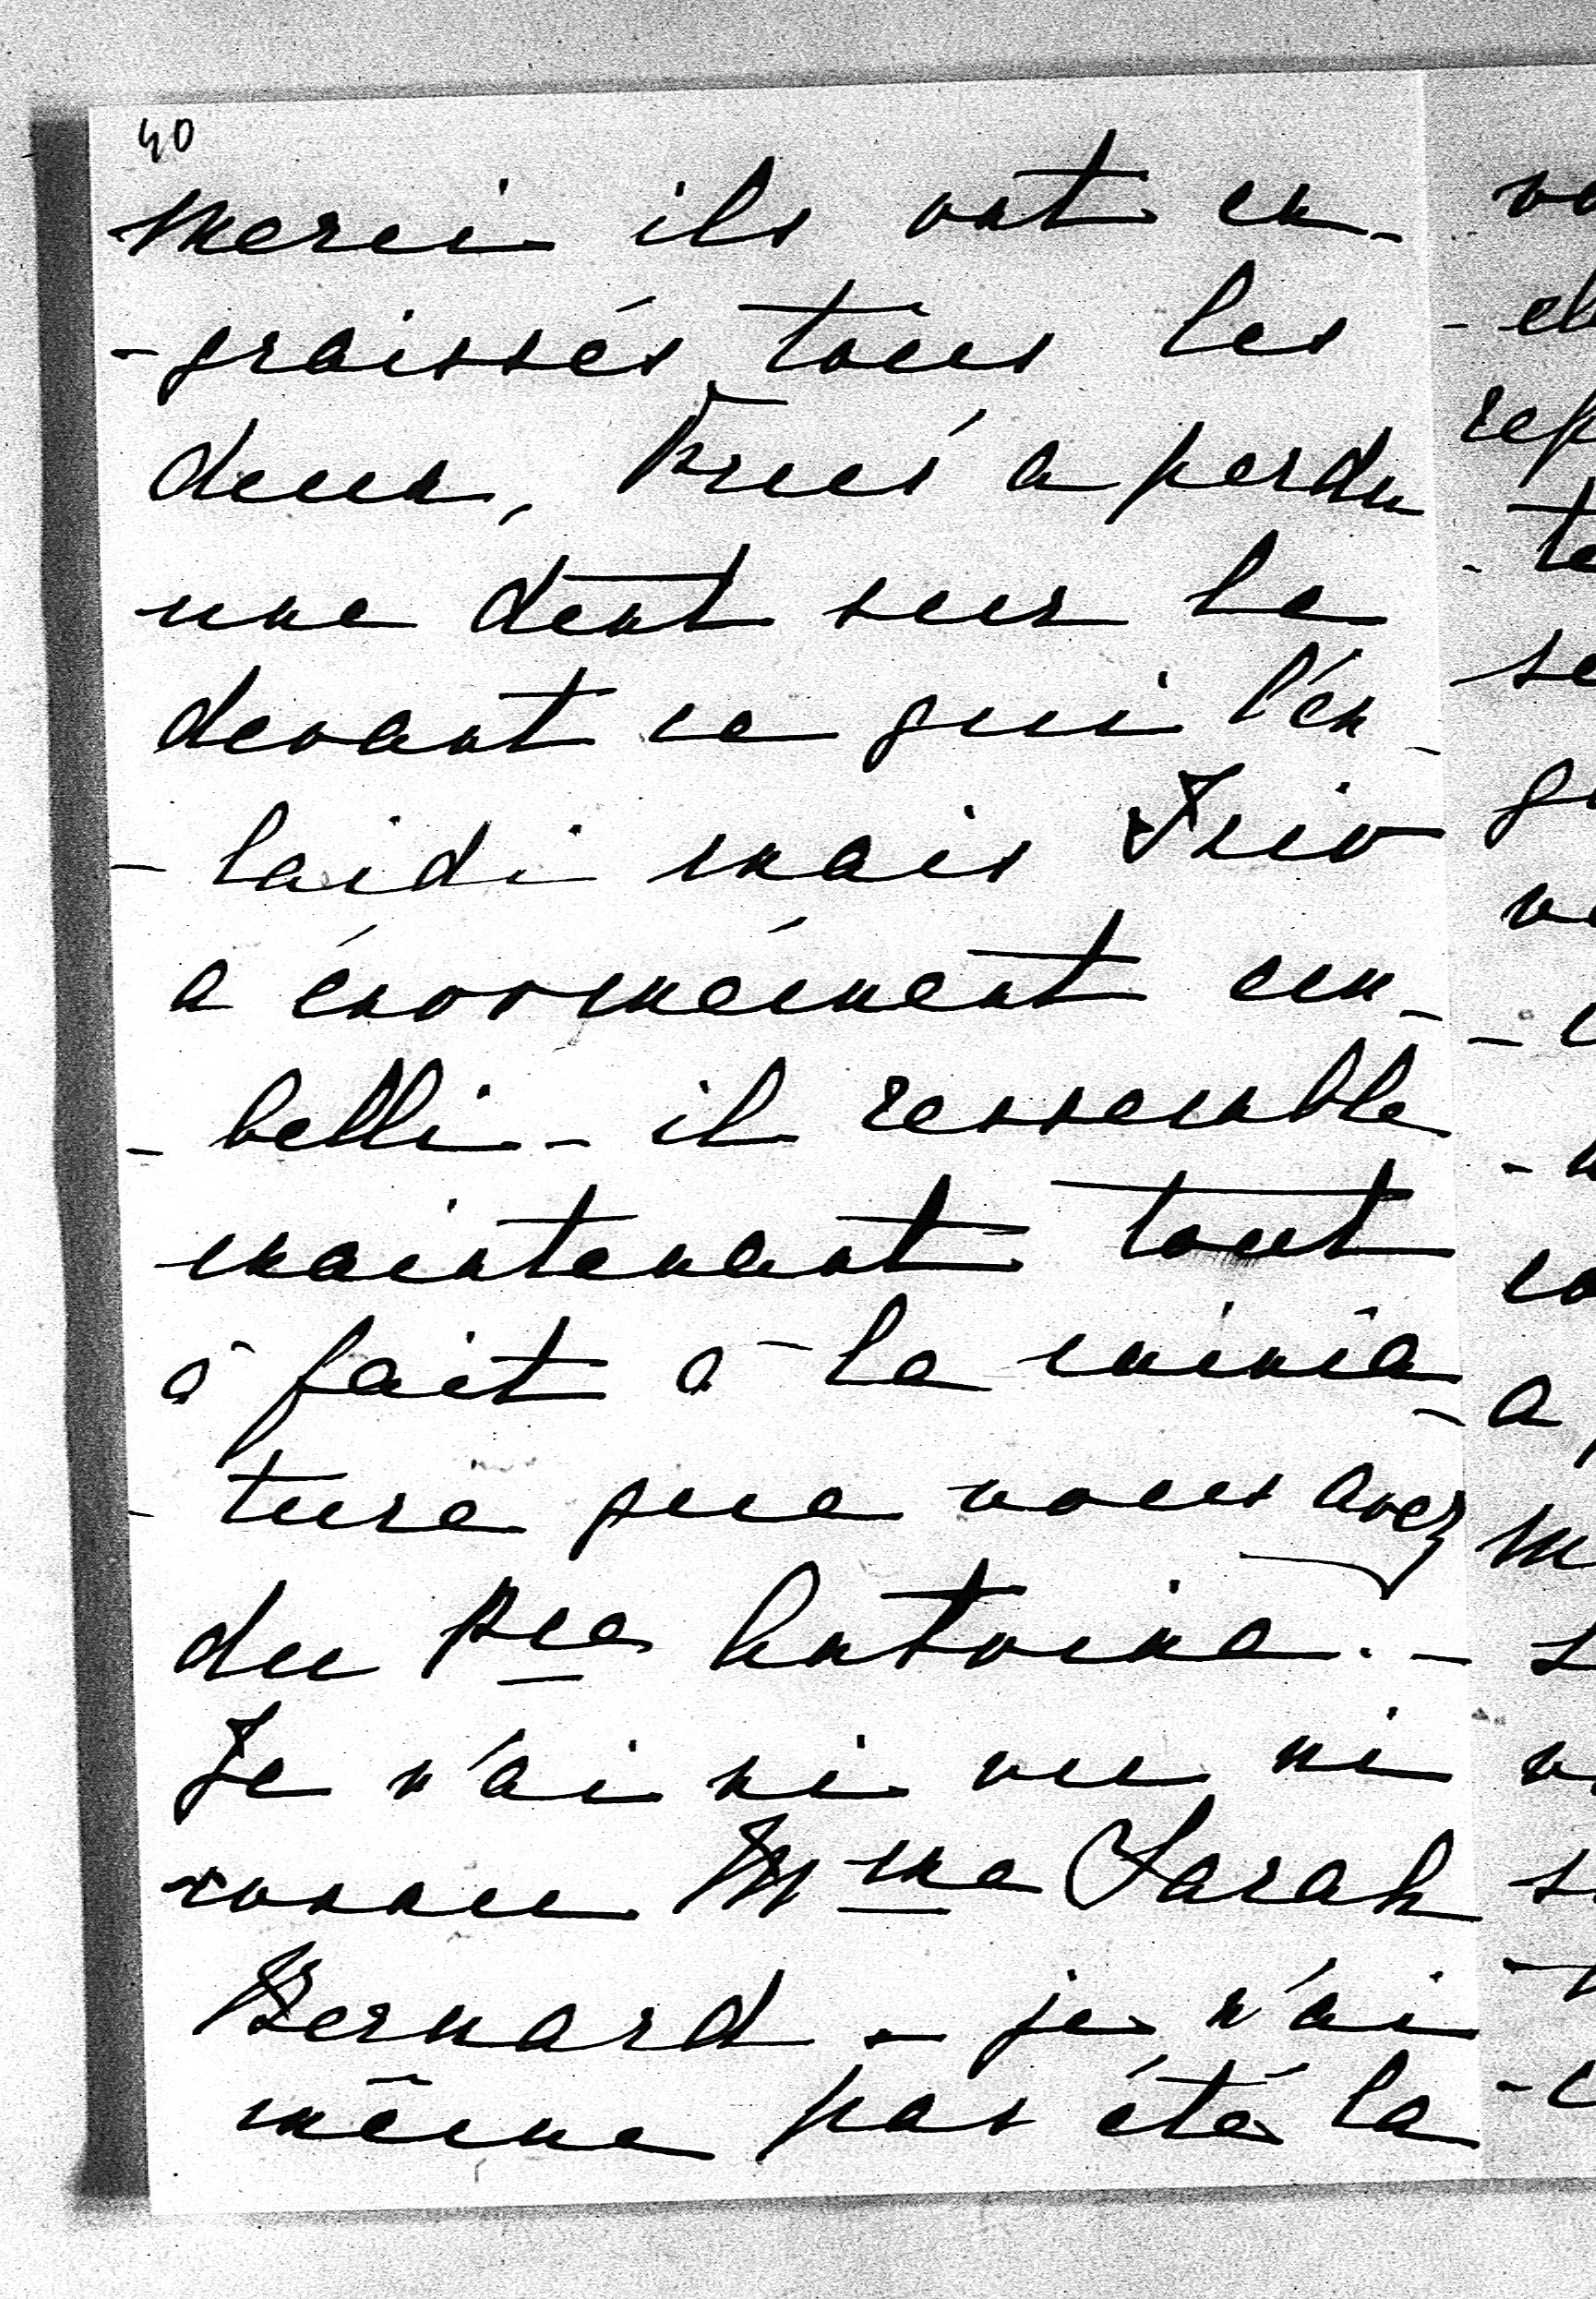 40
merci ils ont en-
-graissés tous les
deux, a perdu
une dent sur le
devant ce qui l'en-
-laidi mais
a énormément em-
-belli - il ressemble
maintenant tout
à fait à la minia-
-ture que vous avez
du Pce Antoine. -
Je n'ai ni vu ni
connu Mme Sarah
Bernard - je n'ai
même pas été la